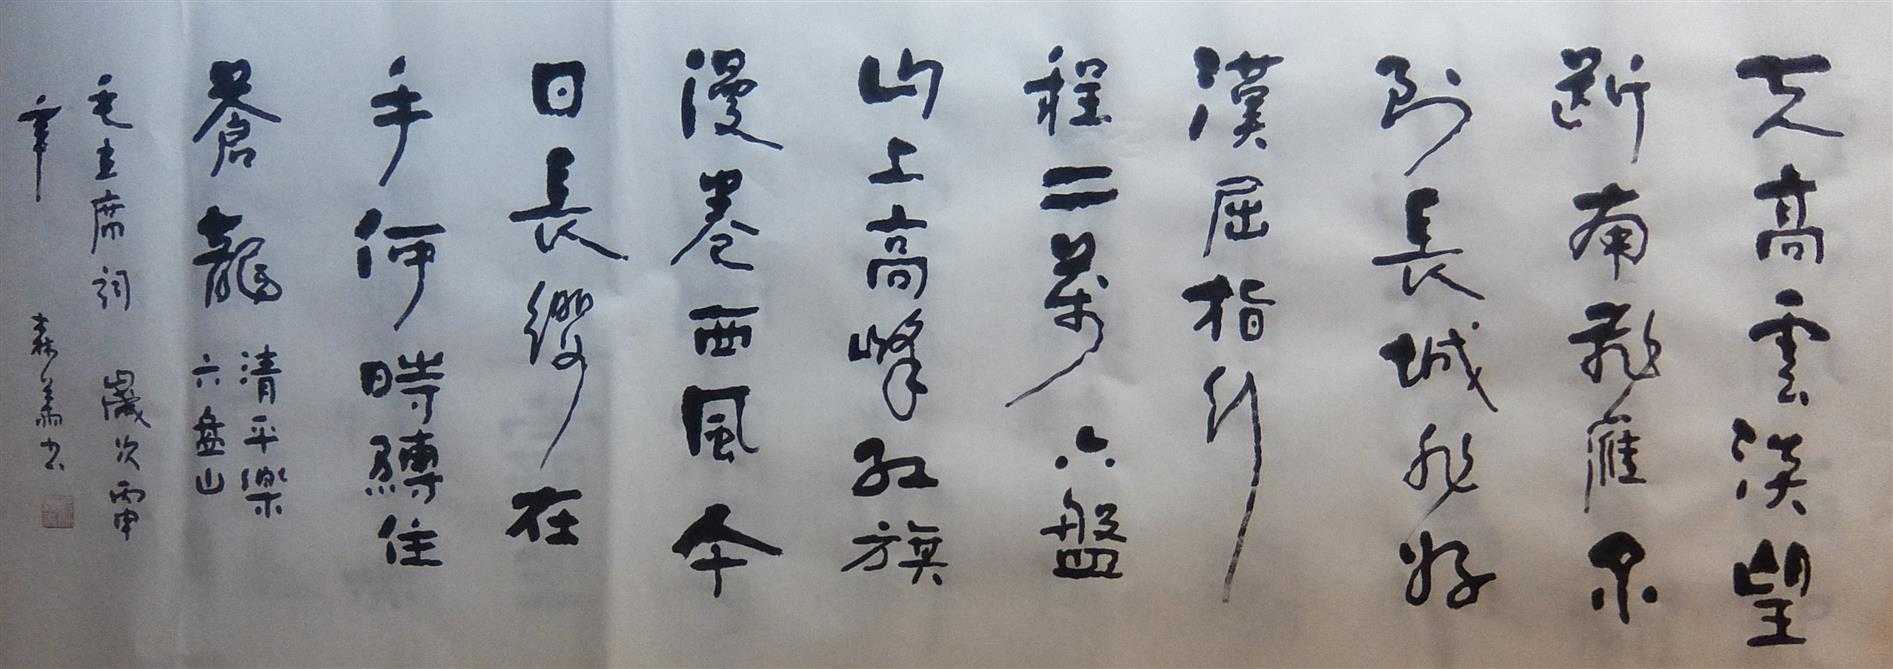 天高雲淡望
断南飛雁不
到長城非好
漢屈指行
程二萬六盤
山上高峰红旗
漫卷西風今
日長纓在
手何時縛住
蒼龍
清平樂
六盤山
毛主席詞 歲次丙申
年 森书